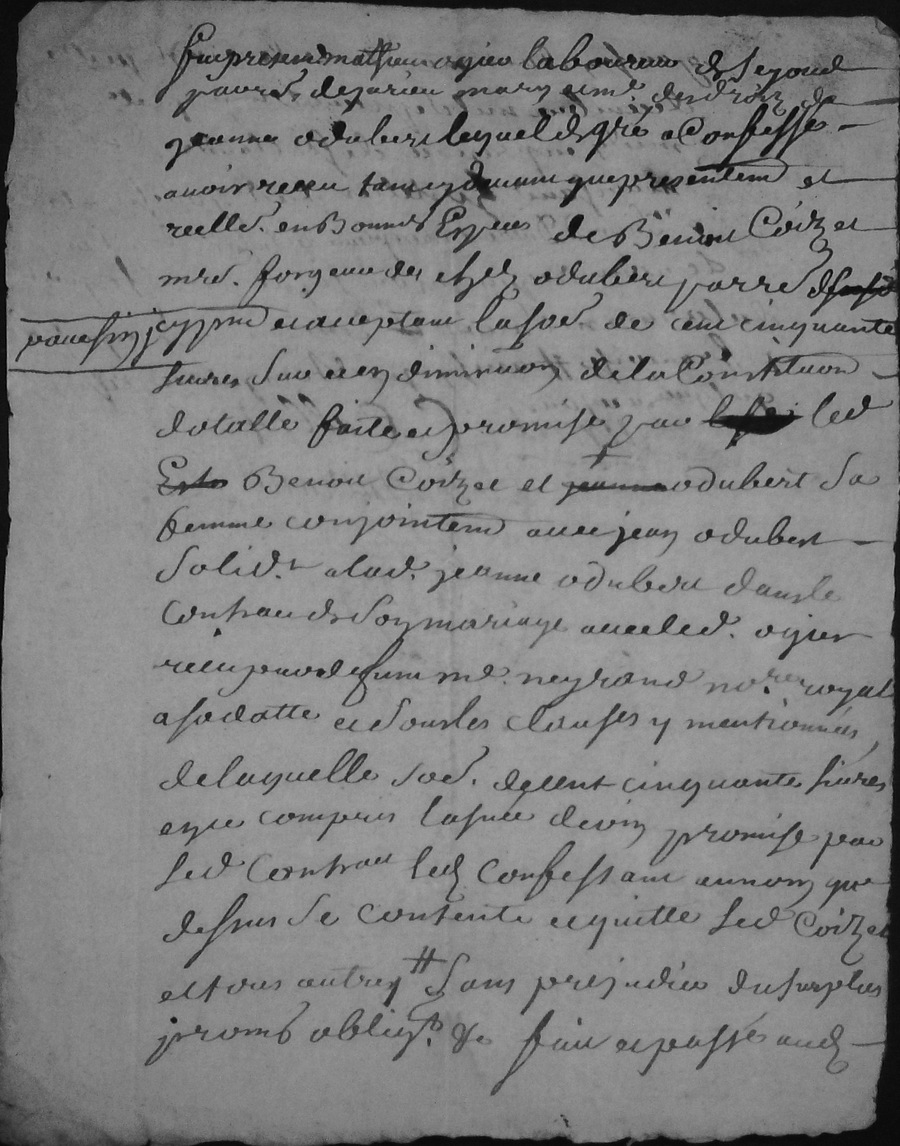 fut present mathieu ogier laboureur de segond
parr. de jarieu mary et me. des droiz de
jeanne odubert lequel de gré a confessé
avoir receu tant cydevant que presentemt et
reellemt. en bonnes Especes de Benoit Coizet
mre. forgeur de chez odubert parr.
parr cy pnt et acceptant la som de cent cinquante
livres sur et en diminuon de la Constituon
dotalle faite et promise par led
Benoit Coizet et odubert sa
femme conjointemt avec jean odubert
solidt. a lad. jeanne odubert dans le
contrat de son mariage avec led. ogier
receu par defunt me. neyrand nore. royal
a sa datte et sous les clauses y mentionnées,
de laquelle som. de cent cinquante livres
eyce compris l'asnée de vin promise par
led Contrat led confessant au nom que
dessus se contente et quitte led Coizet
et tous autres # sans prejudice du surplus
proms obligt. &c fait et passé aud